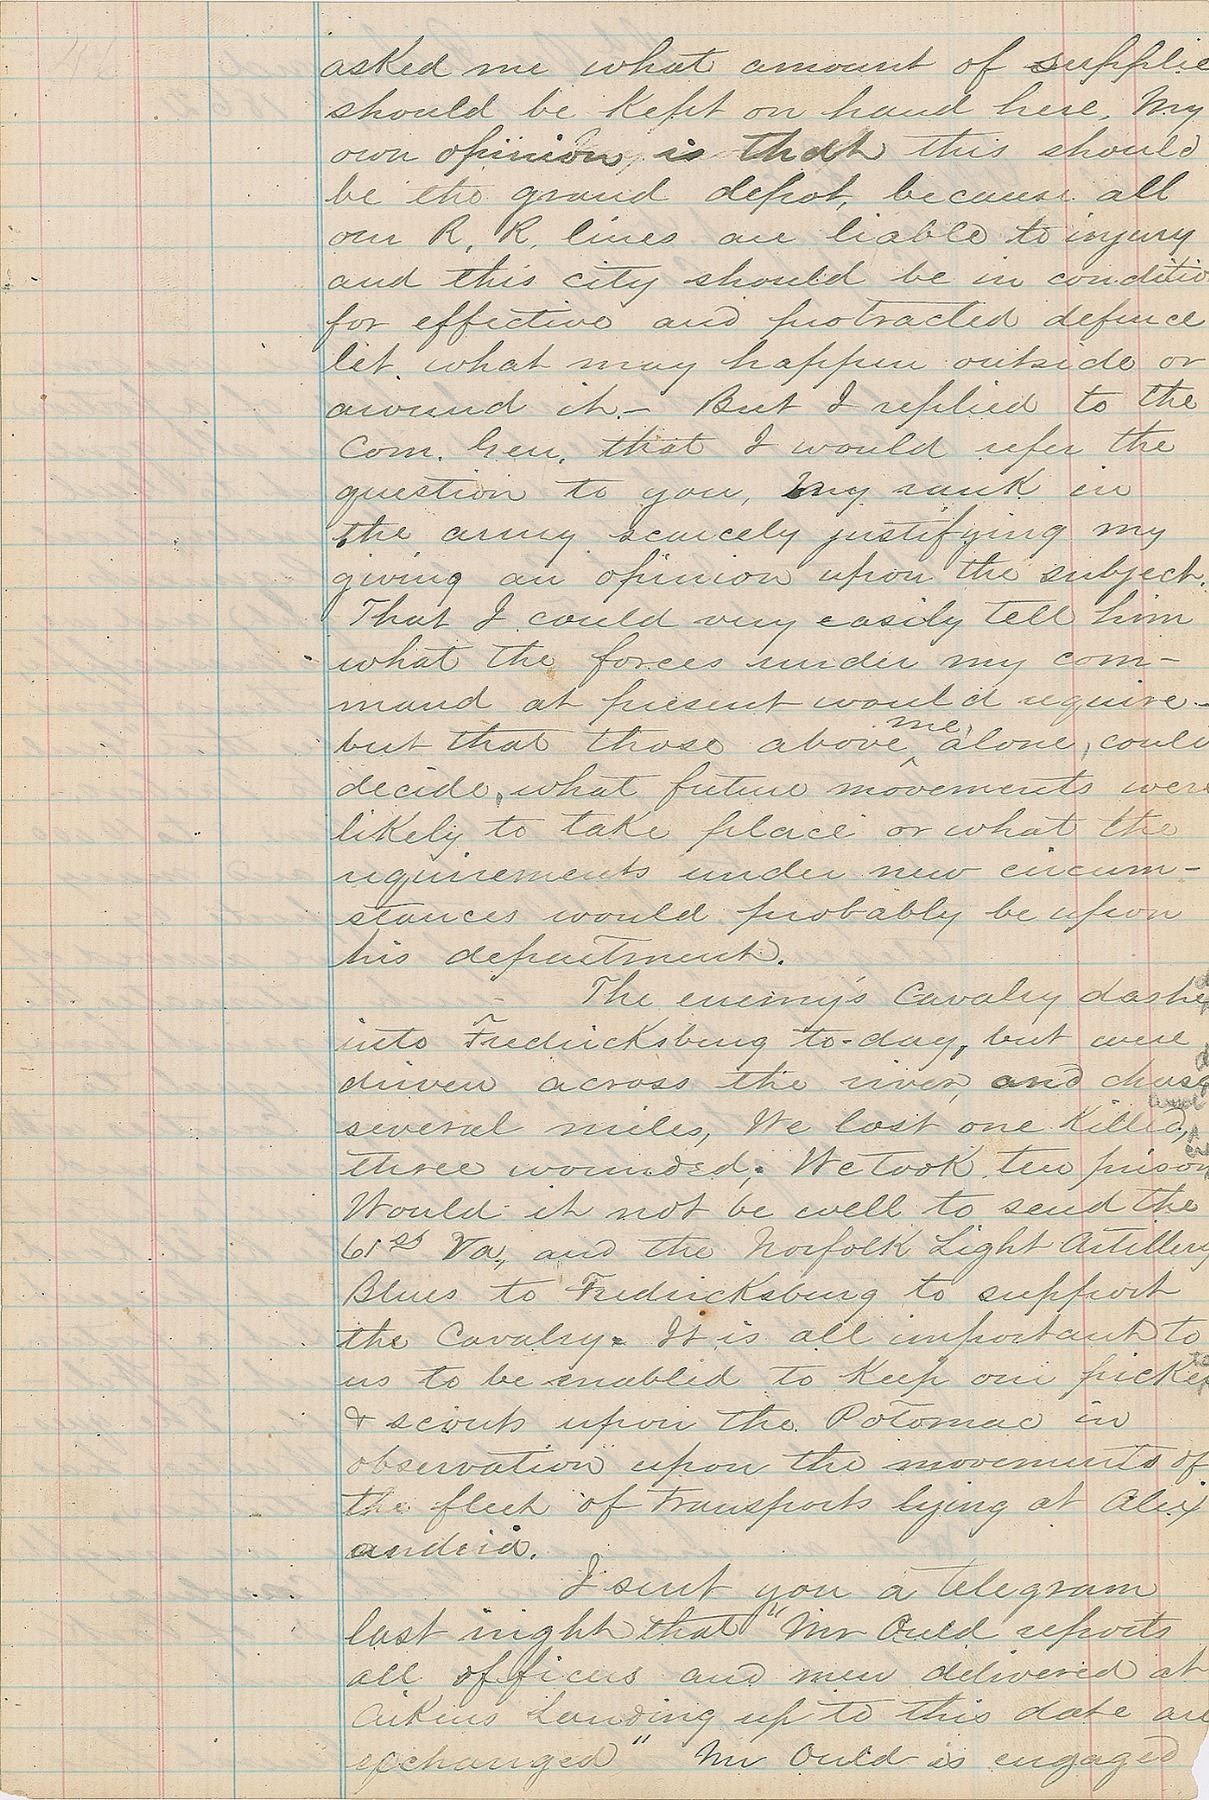 asked me what amount of supplie
should be kept on hand here, My
own opinion, is that this should
be the grand depot, because all
our R, R, lines are liable to injury
and this city should be in conditio
for effective and protracted defence
let what may happen outside or
around it,- But I replied to the
Com. Gen. that I would refer the
question to you, my rank in
the army scarcely justifying my
giving an opinion upon the subject.
That I could very easily tell him
what the forces under my com-
mand at present would require-
but that those above me, alone, could
decide, what future movements were
likely to take place or what the
requirements under new circum-
stances would probably be upon
his department.
The enemy's Cavalry dashe
into Fredricksburg to-day, but were
driven across the river, and chase
several miles, We lost one killed,
three wounded; We took ten prison
Would it not be well to send the
61st Va, and the Norfolk Light Artillery
Blues to Fredricksburg to support
the Cavalry. It is all important to
us to be enabled to keep our picke
& scouts upon the Potomac in
observation upon the movements of
the fleet of transports lying at Alex
andria.
I sent you a telegram
last night that "Mr Ould reports
all officers and men delivered at
Aikins Landing up to this date are
exchanged" Mr Ould is engaged